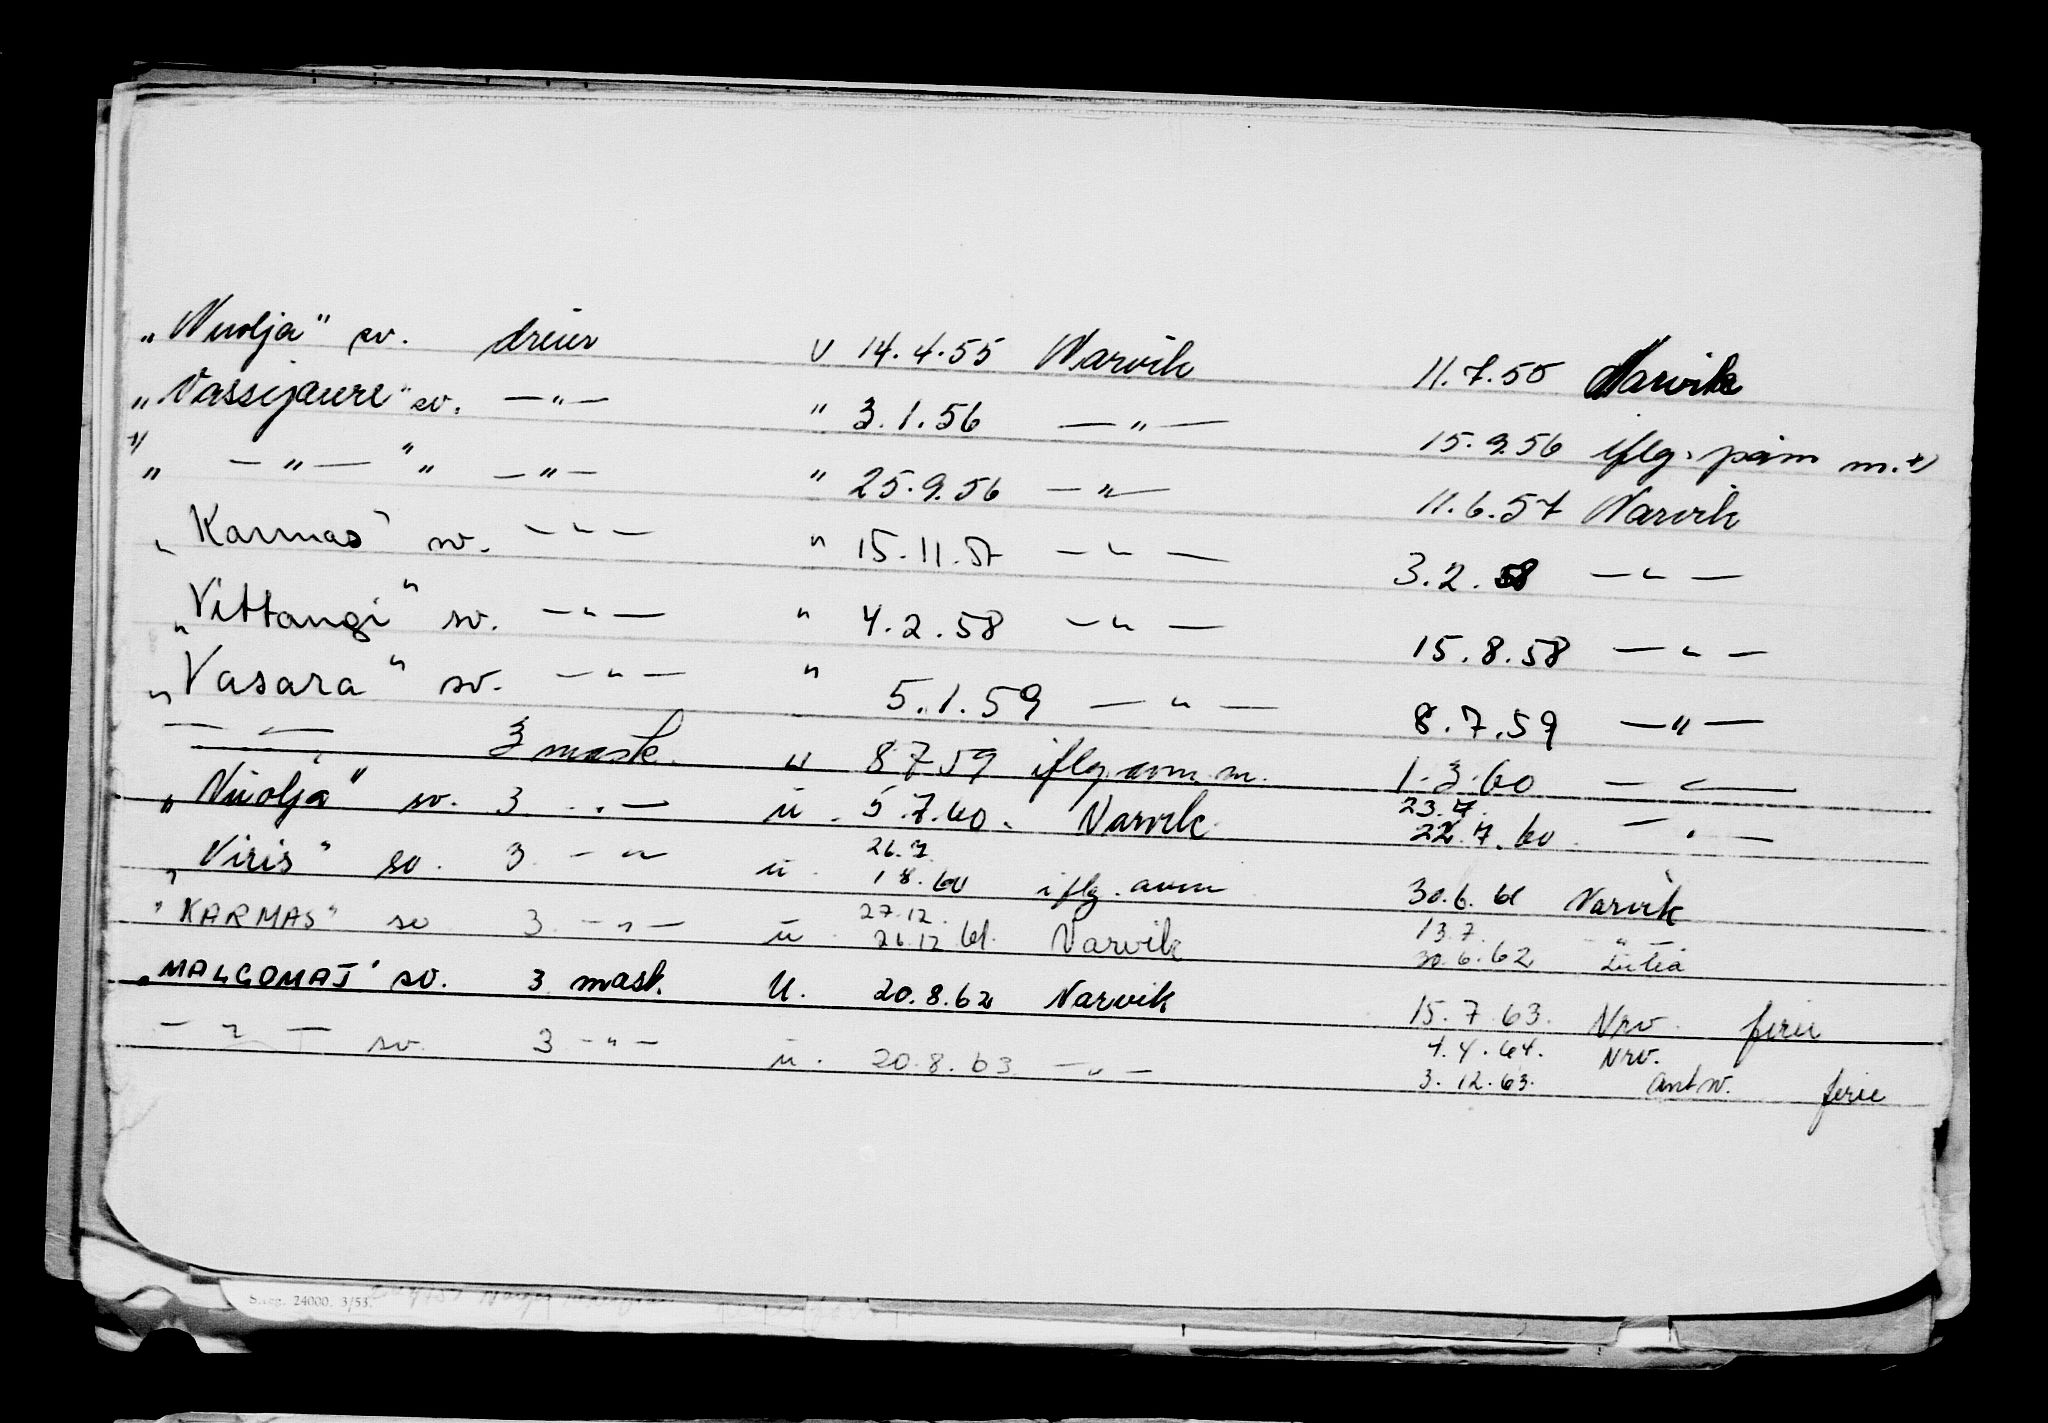 „Nuolja" sv. dreier v 14.4.55 Narvik 11.7.55 Narvik
„Vassijaure" sv. —"— " 3.1.56 —"— 15.9.56 iflg. påm m. *)
*) „ —"— " " —"— " 25.9.56 —"— 11.6.57 Narvik
„Karmas" sv. —"— " 15.11.57 —"— 3.2.58 —"—
„Vittangi" sv. —"— " 4.2.58 —"— 15.8.58 —"—
„Vasara" sv. —"— " 5.1.59 —"— 8.7.59 —"—
—"— 3 mask. u 8.7.59 iflg. avm. m. 1.3.60 —"—
„Nuolja" sv. 3 —"— u. 5.7.60. Narvik 23.7. 22.7.60 —"—
„Viris" sv. 3. —"— u. 26.7. 1.8.60 iflg. avm 30.6.61 Narvik
"KARMAS" sv 3 —"— u. 27.12. 26.12.61. Narvik 13.7. 30.6.62 " Luleå
„MALGOMAJ" sv. 3 mask. U. 20.8.62 Narvik 15.7.63. Nrv. ferie
—"— sv. 3 —"— u. 20.8.63 —"— 4.4.64. Nrv.
3.12.63. Antw. ferie
24000. 3/53.